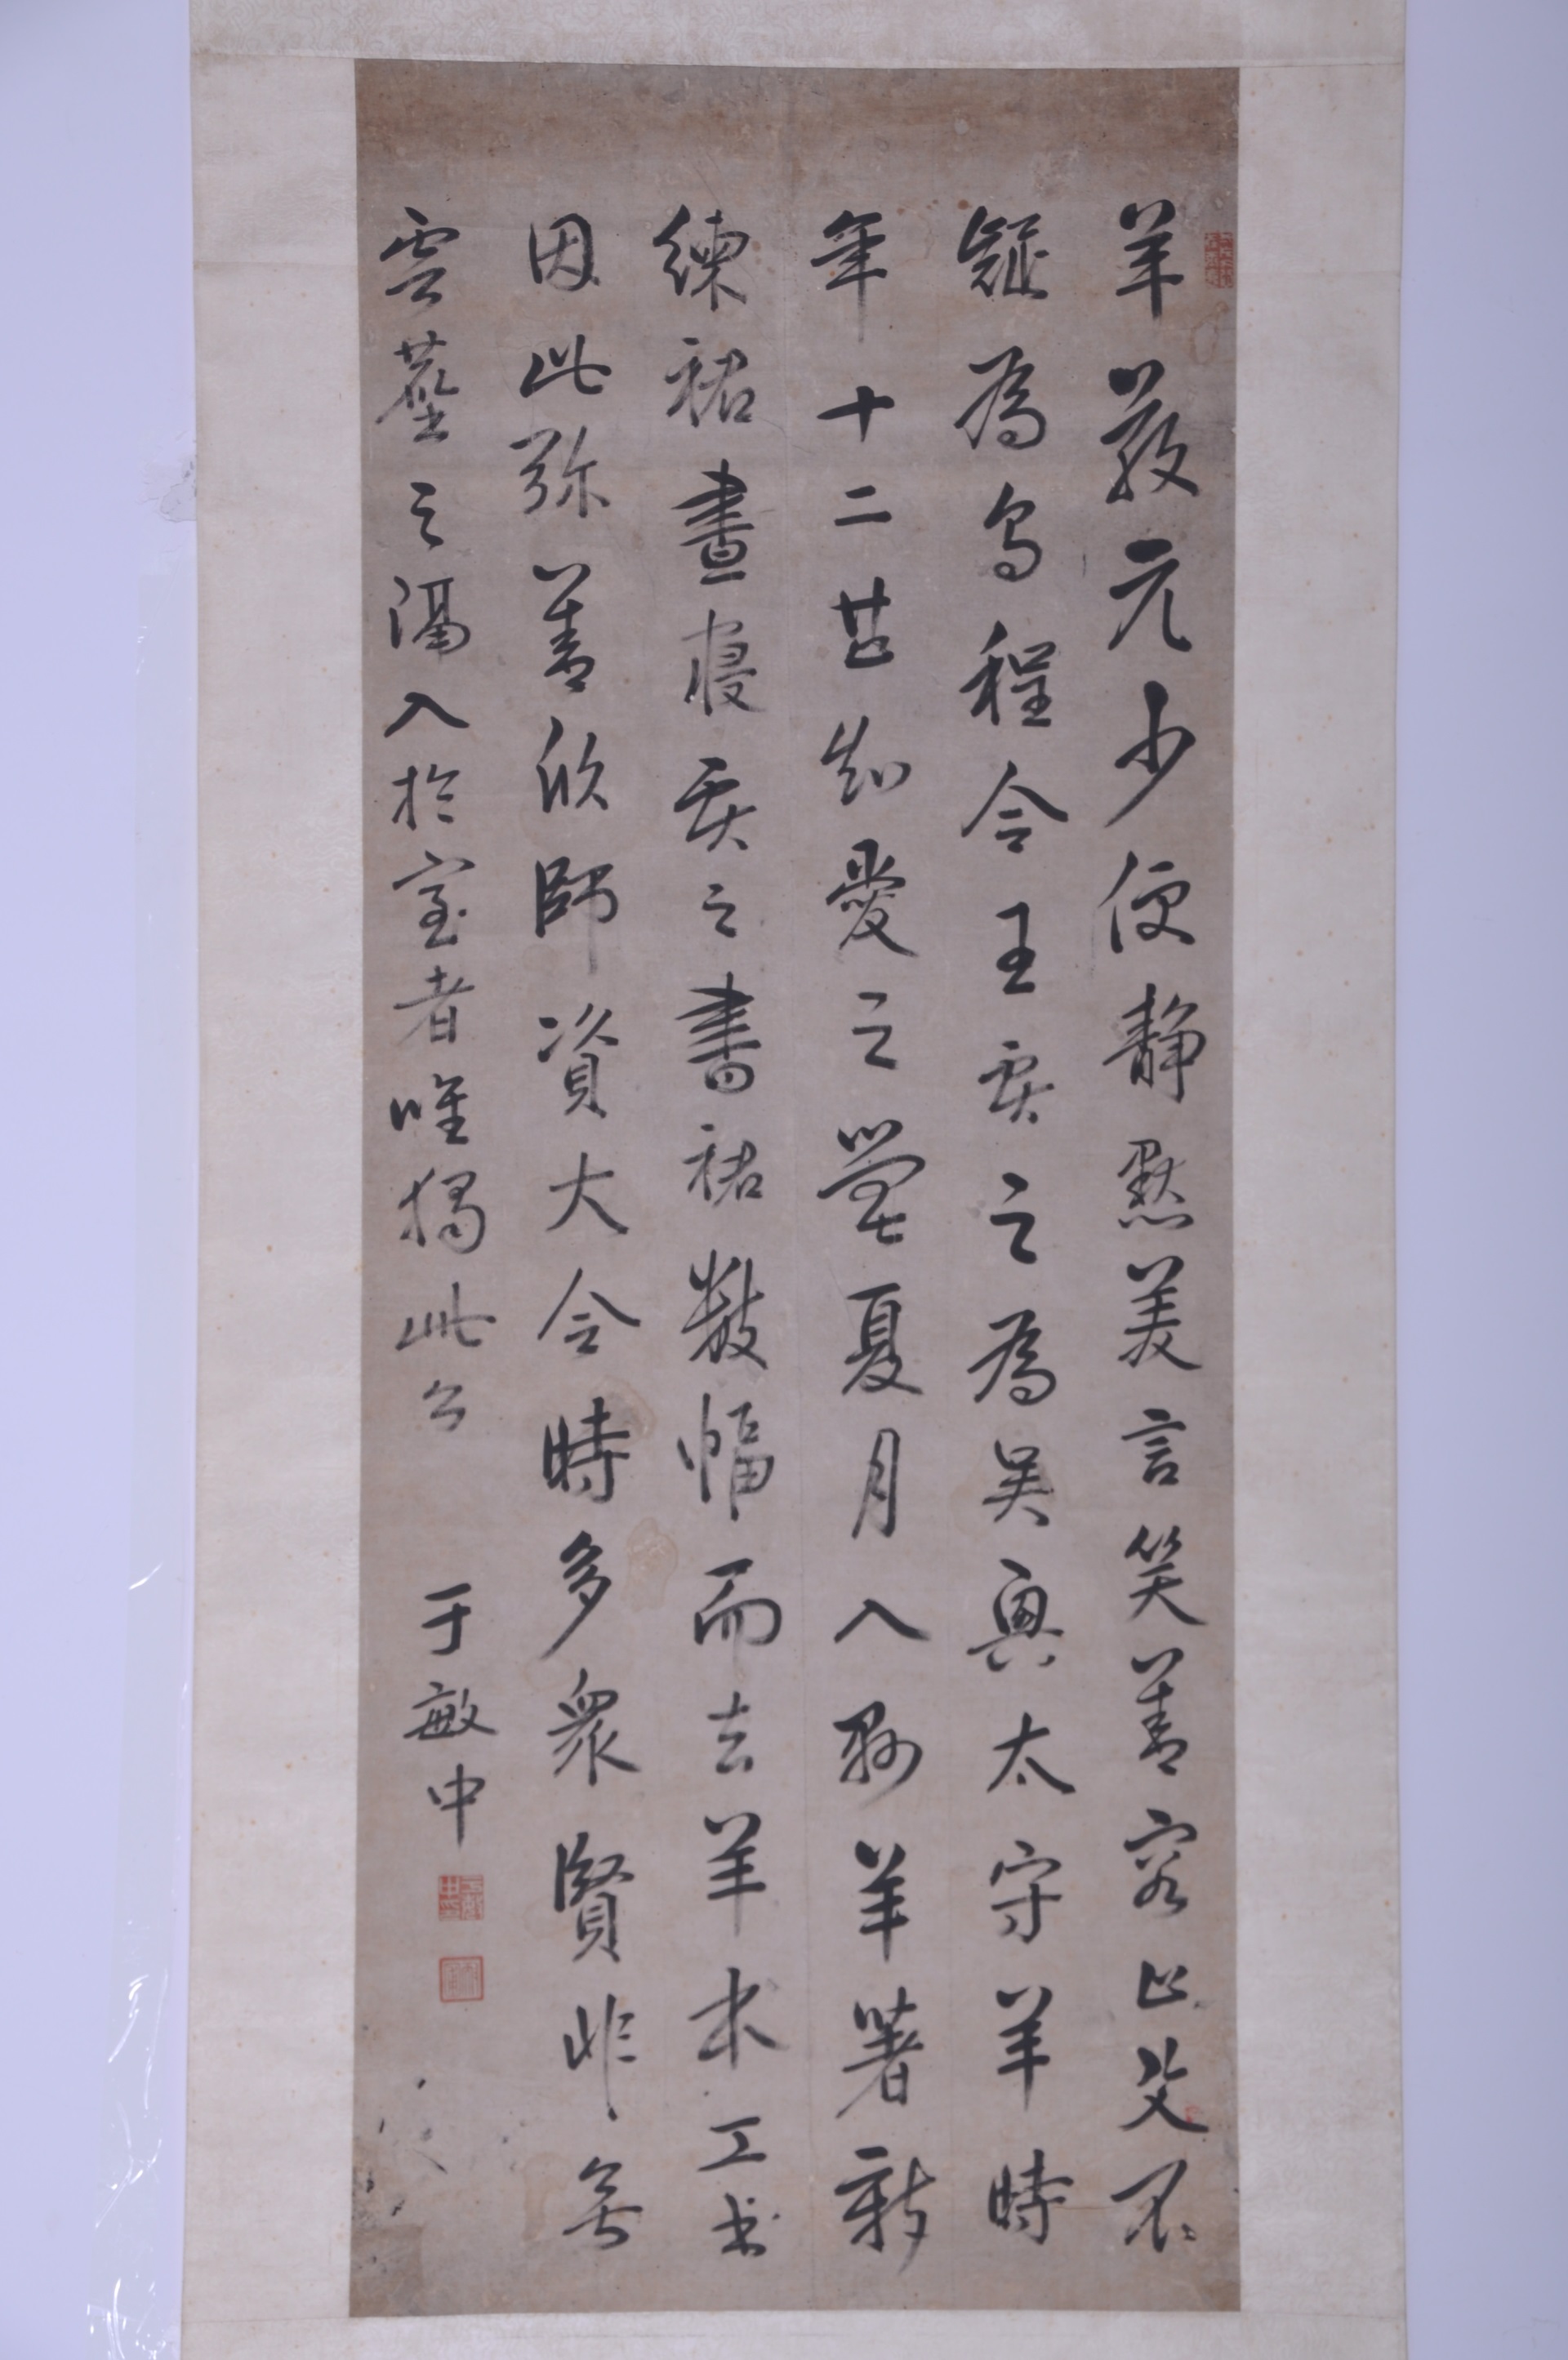 羊敬元少便靜默美言笑善容止父不
疑為烏程令王獻之為吳興太守羊時
年十二甚知愛之嘗夏月入縣羊著新
練裙晝寢獻之書裙數幅而去羊本工書
因此弥善欣師資大令時多眾賢非無
雲塵之隔入於室者唯獨此公
于敏中